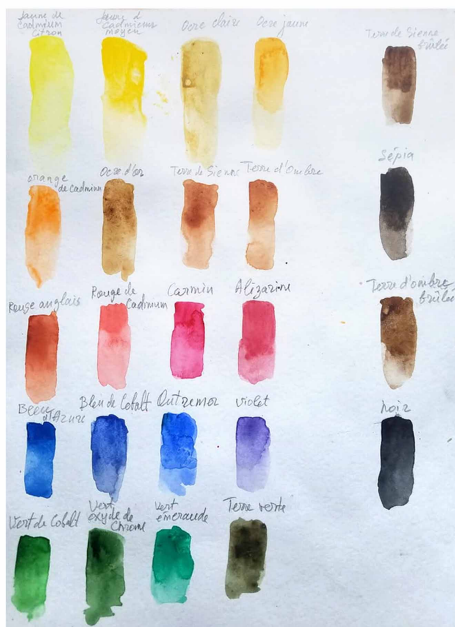 Jaune de
cadmium
citron
Jaune d
cadmium
moyen
Ocre claire
Ocre jaune
Terre de Sienne
brûlée
orange
de cadmium
Ocre d'or
Terre de Sienne
Terre d'Ombre
Sépia
Rouge anglais
Rouge de
Cadmum
Carmin
Alizarine
Terre d'ombre
brûlée
Bleu
d'Azure
Bleu de Cobalt
Outremer
Violet
Noir
Vert de Cobalt
Vert
oxyde de
Chrome
Vert
émeraude
Terre verte